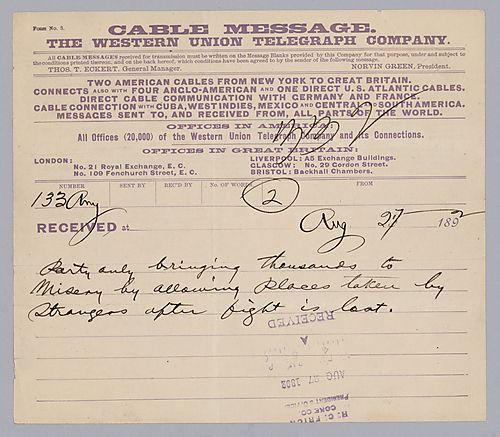 FORM No. 3.
CABLE MESSAGE.
THE WESTERN UNION TELEGRAPH COMPANY.
All CABLE MESSAGES received for transmission must be written on the Message Blanks provided by this Company for that purpose, under and subject to
the conditions printed thereon, and on the back hereof, which conditions have been agreed to by the sender of the following message.
THOS. T. ECKERT, General Manager. NORVIN GREEN, President.
TWO AMERICAN CABLES FROM NEW YORK TO GREAT BRITAIN.
CONNECTS ALSO WITH FOUR ANGLO-AMERICAN AND ONE DIRECT U.S. ATLANTIC CABLES.
DIRECT CABLE COMMUNICATION WITH GERMANY AND FRANCE.
CABLE CONNECTION WITH CUBA, WEST INDIES, MEXICO AND CENTRAL AND SOUTH AMERICA.
MESSAGES SENT TO, AND RECEIVED FROM, ALL PARTS OF THE WORLD.
OFFICES IN AMERICA:
All Offices (20,000) of the Western Union Telegraph Company and its Connections.
OFFICES IN GREAT BRITAIN:
LONDON: LIVERPOOL: A5 Exchange Buildings.
No. 21 Royal Exchange, E. C. GLASGOW: No. 29 Gordon Street.
No. 109 Fenchurch Street, E. C. BRISTOL: Backhall Chambers.
NUMBER SENT BY REC'D BY No. OF WORDS FROM
133 2
RECEIVED at Aug 27 1892
Party only bringing thousands to
Misery by allowing Places taken by
Strangers after fight is lost.
RECEIVED
AUG 27 1892
H. C. FRICK
COKE CO.
PRESIDENT'S OFFICE